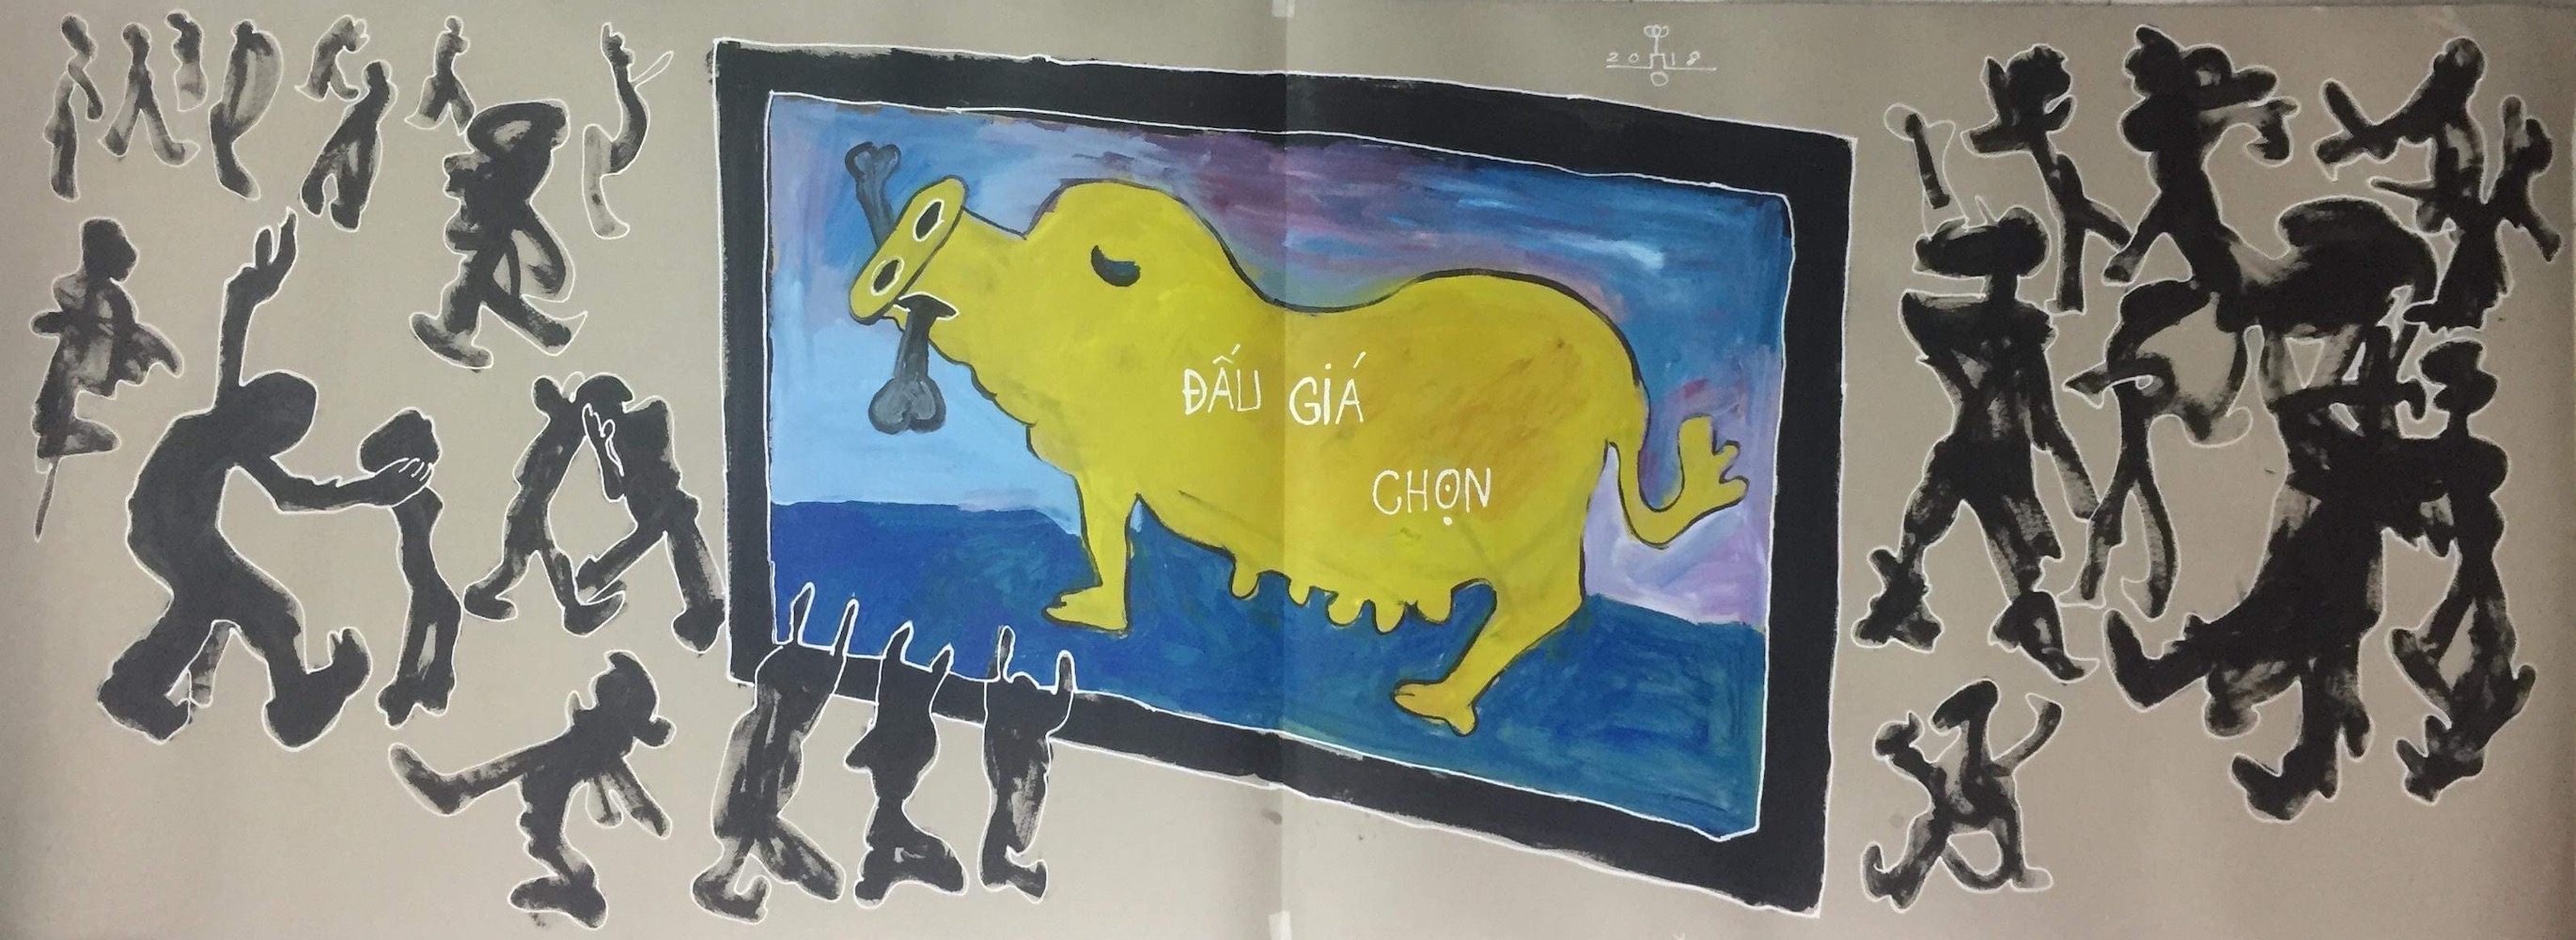 2018
ĐẤU GIÁ
CHỌN